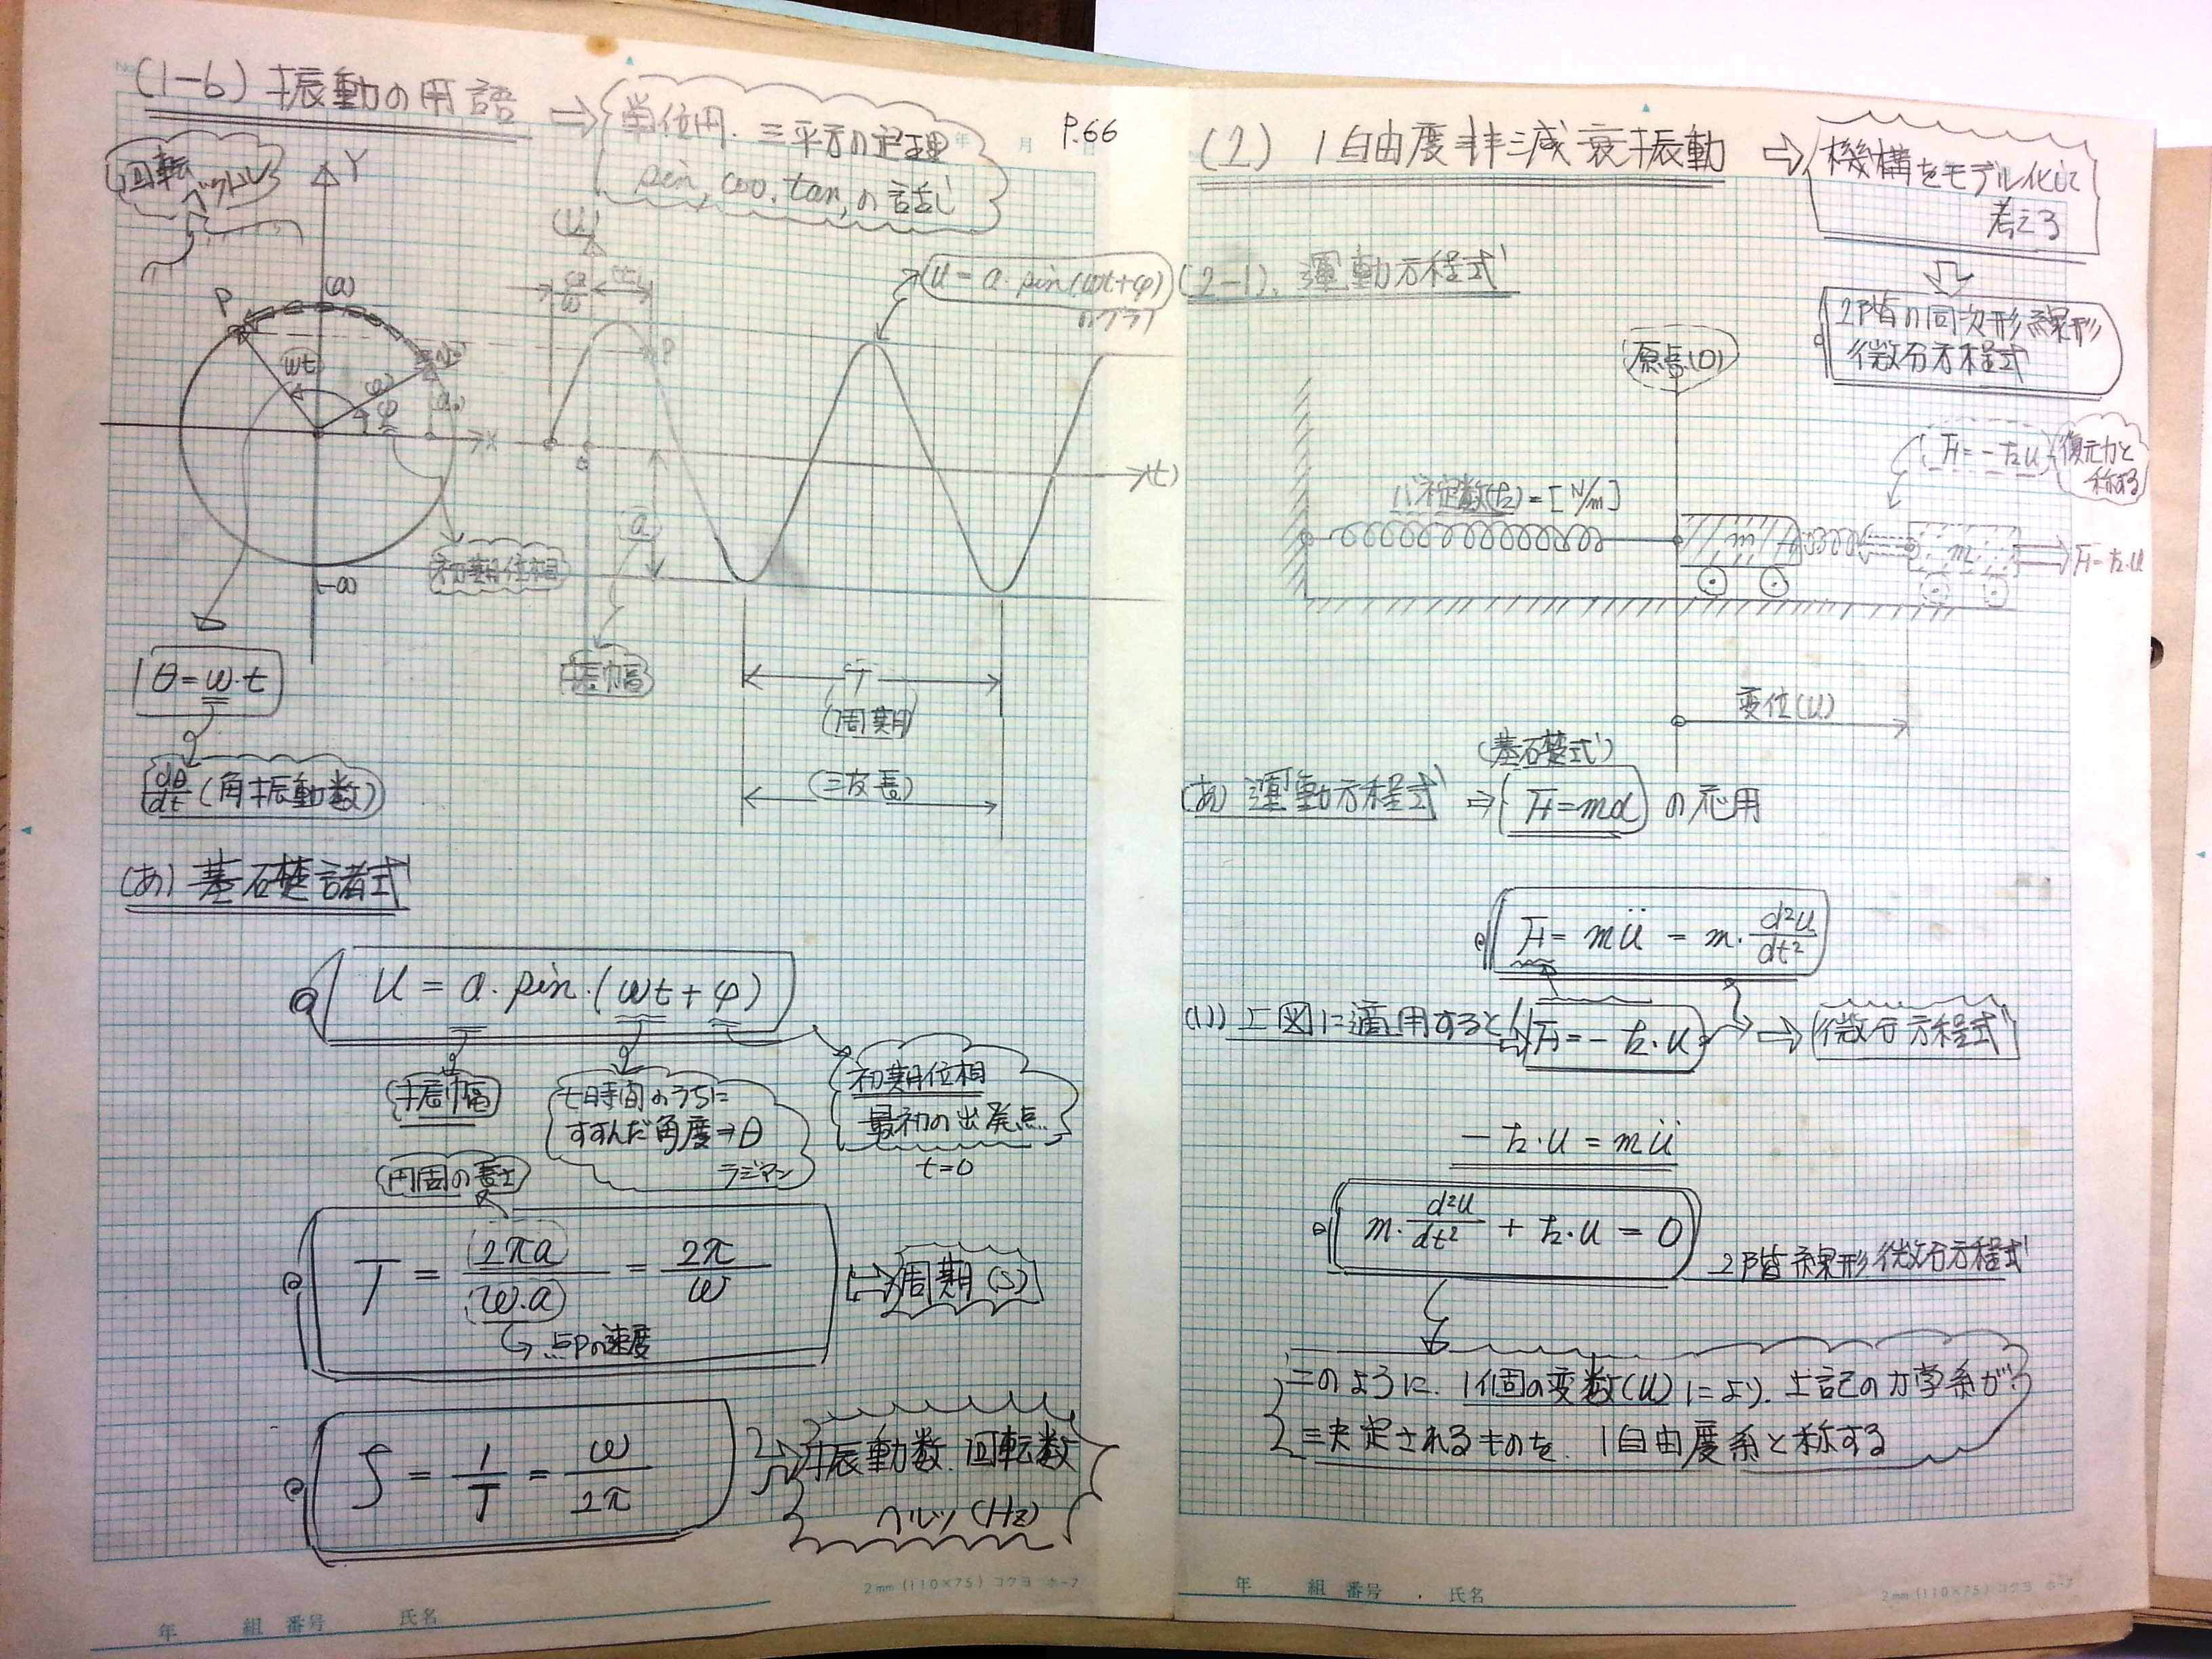 (1-6) 振動の用語
⇒ 単位円. 三平方の定理
sin, cos, tan, の話し
P.66
回転
ベクトル
Y
(a)
P
ωt
φ
X
(-a)
初期位相
θ=ω・t
dθ/dt (角振動数)
(u)
φ/ω
P
u = a・sin(ωt+φ)
のグラフ
(t)
a
振幅
T
(周期)
(波長)
(あ) 基礎諸式
u = a・sin・(ωt + φ)
振幅
t時間のうちに
すすんだ角度⇒θ
ラジアン
初期位相
最初の出発点
t=0
円周の長さ
T = 2πa/(ω・a) = 2π/ω
点Pの速度
周期(S)
f = 1/T = ω/2π
振動数. 回転数
ヘルツ (Hz)
2mm (110×75) コクヨ ホ-7
年 組 番号 氏名
(2) 1自由度非減衰振動
⇒ 機構をモデル化して
考える
2階の同次形線形
微分方程式
(2-1). 運動方程式
原点(0)
F=-k・u
復元力と
称する
バネ定数(k)=[N/m]
m
m
F=k・u
変位(u)
(基礎式)
(あ) 運動方程式 ⇒ F=mα の応用
F = mü = m・d²u/dt²
(い) 上図に適用すると F=-k・u ⇒ 微分方程式
-k・u = mü
m・d²u/dt² + k・u = 0
2階線形微分方程式
このように. 1個の変数(u)により. 上記の力学系が
決定されるものを. 1自由度系と称する
年 組 番号 氏名
2mm (110×75) コクヨ ホ-7